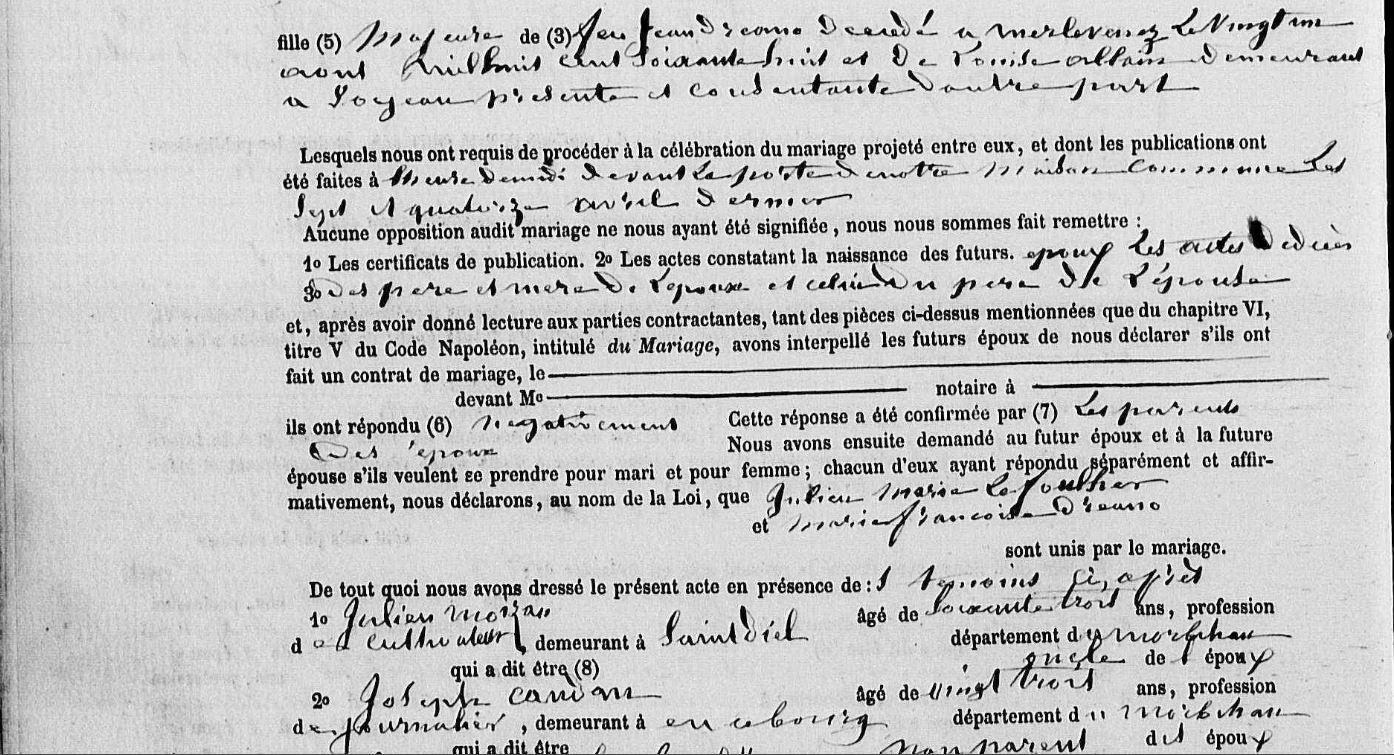 fille (5) Majeure de (3) feu Jean Dreano décédé a merlevenez Le Vingt un
aout mil huit cent Soixante huit et De Louise allain demeurant
a presente et consentante D'autre part
Lesquels nous ont requis de procéder à la célébration du mariage projeté entre eux, et dont les publications ont
été faites à l'heure de midi devant La porte de notre maison commune Les
Sept et quatorze avril dernier
Aucune opposition audit mariage ne nous ayant été signifiée, nous nous sommes fait remettre :
1o Les certificats de publication. 2o Les actes constatant la naissance des futurs. epoux Les actes De décès
3o Des pere et mere De L'epoux et celui Du pere De L'épouse
et, après avoir donné lecture aux parties contractantes, tant des pièces ci-dessus mentionnées que du chapitre VI,
titre V du Code Napoléon, intitulé du Mariage, avons interpellé les futurs époux de nous déclarer s'ils ont
fait un contrat de mariage, le
devant Me notaire à
ils ont répondu (6) negativement Cette réponse a été confirmée par (7) Les parents
Des époux Nous avons ensuite demandé au futur époux et à la future
épouse s'ils veulent se prendre pour mari et pour femme ; chacun d'eux ayant répondu séparément et affir-
mativement, nous déclarons, au nom de la Loi, que Julien Marie Le
et marie françoise Dreano
sont unis par le mariage.
De tout quoi nous avons dressé le présent acte en présence de : temoins ci après
1o Julien moizan âgé de Soixante trois ans, profession
d e cultivateur, demeurant à département du morbihan
qui a dit être (8) oncle de l époux
2o Joseph âgé de vingt trois ans, profession
de journalier, demeurant à en ce bourg département du morbihan
qui a dit être non parent des époux